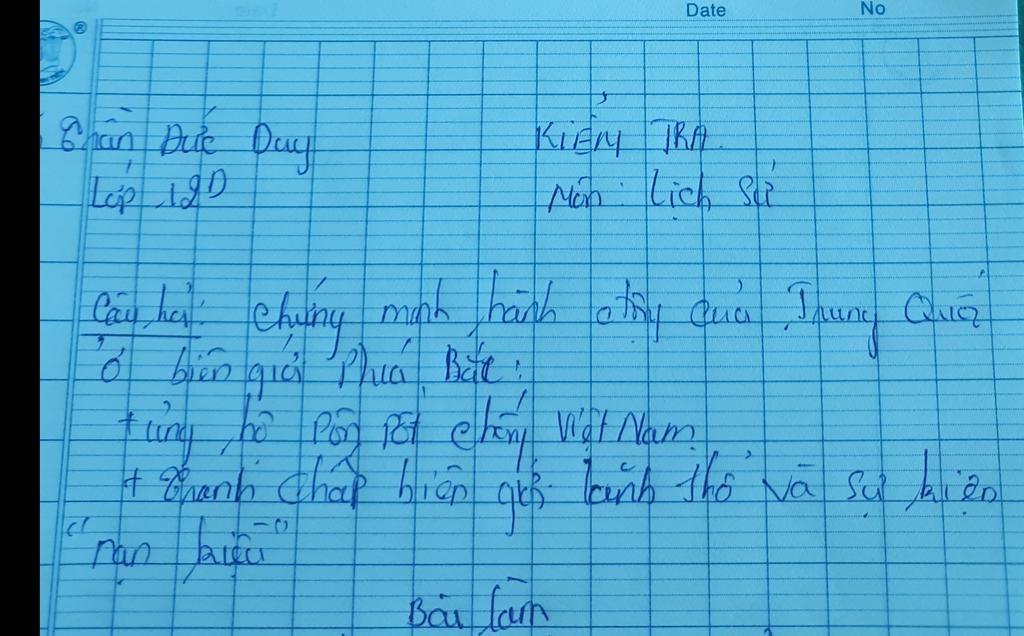 Date No
Trần Đức Duy KIỂM TRA
Lớp 12D Môn: Lịch Sử
Câu hỏi: chứng minh hành động của Trung Quốc
ở biên giới Phía Bắc:
+ ủng hộ Pôn Pốt chống Việt Nam
+ Tranh chấp biên giới lãnh thổ và sự kiện
"nạn kiều"
Bài làm